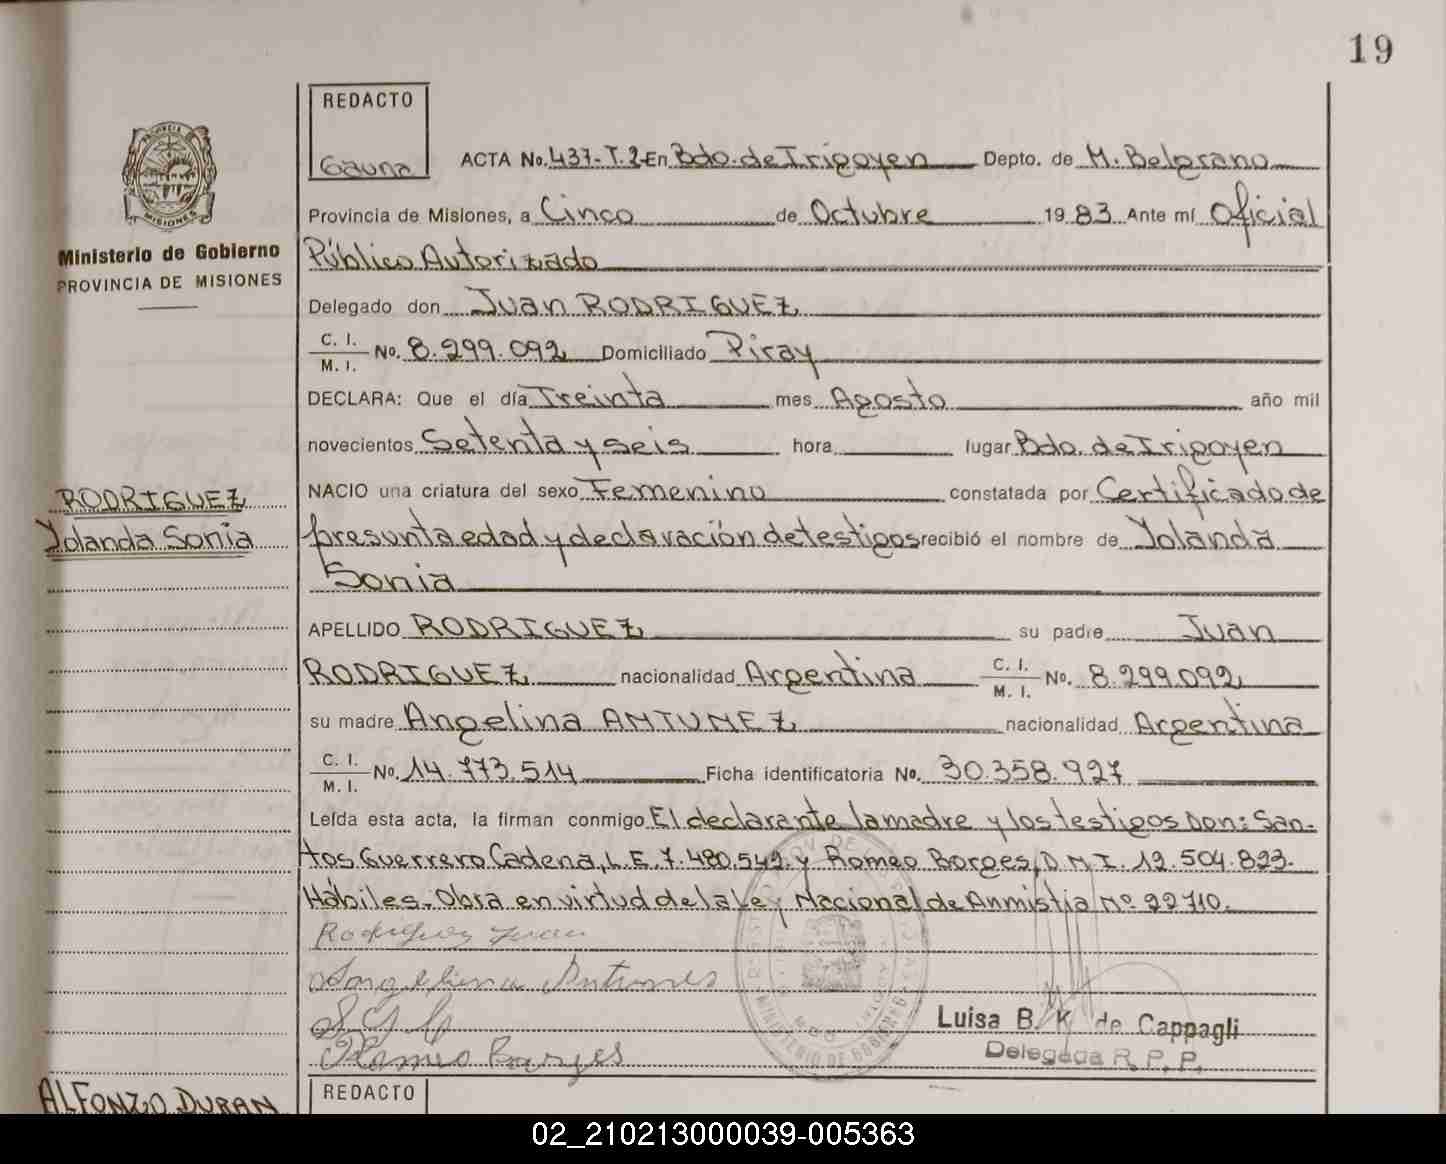 19
REDACTO
Gauna
ACTA No. 437-T.2- En Bdo. de Irigoyen Depto. de M. Belgrano
Provincia de Misiones, a Cinco de Octubre 19 83 Ante mí Oficial
Ministerio de Gobierno
PROVINCIA DE MISIONES
Público Autorizado
Delegado don Juan RODRIGUEZ
C. I.
M. I. No. 8.299.092 Domiciliado Piray
DECLARA: Que el día Treinta mes Agosto año mil
novecientos Setenta y seis hora lugar Bdo. de Irigoyen
NACIO una criatura del sexo Femenino constatada por Certificado de
RODRIGUEZ
Yolanda Sonia
presunta edad y declaración de testigos recibió el nombre de Yolanda
Sonia
APELLIDO RODRIGUEZ su padre Juan
RODRIGUEZ nacionalidad Argentina C. I. M. I. No. 8.299.092
su madre Angelina ANTUNEZ nacionalidad Argentina
C. I.
M. I. No. 14.773.514 Ficha identificatoria No. 30.358.927
Leída esta acta, la firman conmigo El declarante la madre y los testigos Don: San-
tos Guerrero Cadena, L.E. 7.480.542. y Romeo Borges, D.N.I. 12.504.823.
Hábiles. Obra en virtud de la Ley Nacional de Amnistia Nº 22710.
Rodriguez Juan
Angelina Antunes
S G C
Romeo Borges
MINISTERIO DE GOBIERNO
Luisa B. K. de Cappagli
Delegada R. P. P.
ALFONZO DURAN
REDACTO
02_210213000039-005363